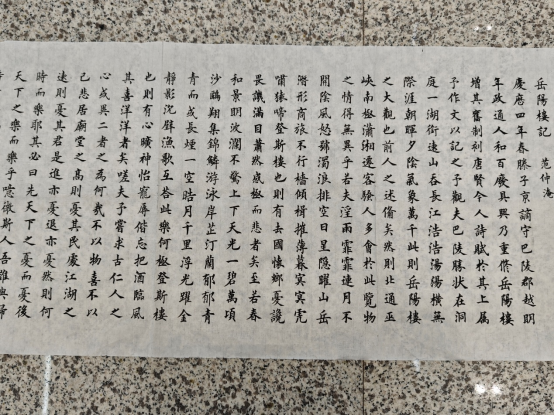 岳陽樓記 范仲淹
慶曆四年春滕子京謫守巴陵郡越明
年政通人和百廢具興乃重修岳陽樓
增其舊制刻唐賢今人詩賦於其上屬
予作文以記之予觀夫巴陵勝狀在洞
庭一湖銜遠山吞長江浩浩湯湯橫無
際涯朝暉夕陰氣象萬千此則岳陽樓
之大觀也前人之述備矣然則北通巫
峽南極瀟湘遷客騷人多會於此覽物
之情得無異乎若夫淫雨霏霏連月不
開陰風怒號濁浪排空日星隱曜山岳
潛形商旅不行檣傾楫摧薄暮冥冥虎
嘯猿啼登斯樓也則有去國懷鄉憂讒
畏譏滿目蕭然感極而悲者矣至若春
和景明波瀾不驚上下天光一碧萬頃
沙鷗翔集錦鱗游泳岸芷汀蘭郁郁青
青而或長煙一空皓月千里浮光躍金
靜影沉璧漁歌互答此樂何極登斯樓
也則有心曠神怡寵辱偕忘把酒臨風
其喜洋洋者矣嗟夫予嘗求古仁人之
心或異二者之為何哉不以物喜不以
己悲居廟堂之高則憂其民處江湖之
遠則憂其君是進亦憂退亦憂然則何
時而樂耶其必曰先天下之憂而憂後
天下之樂而樂乎噫微斯人吾誰與歸